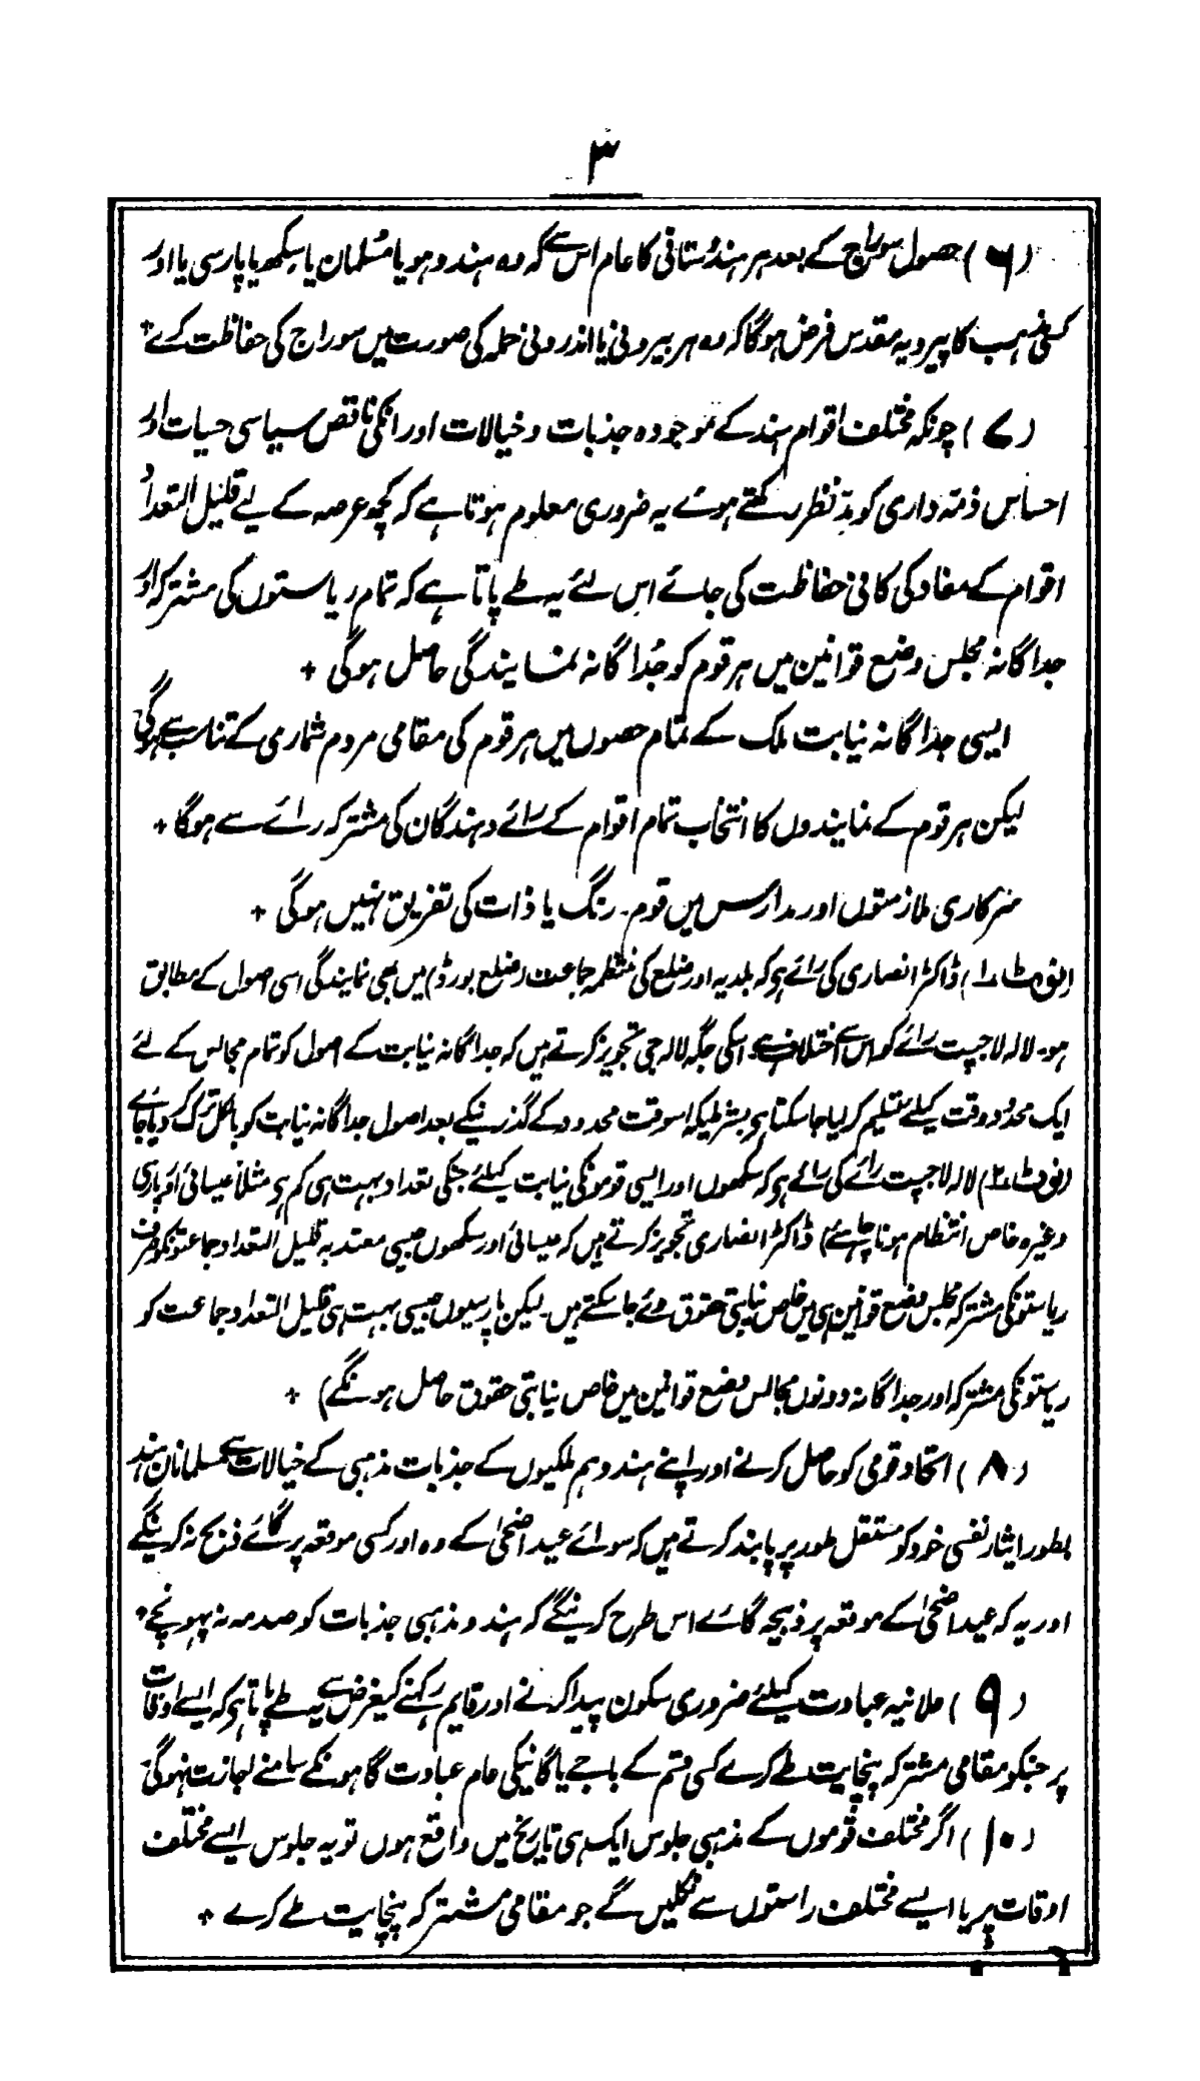 ۳
(۶) حصول سوراج کے بعد ہر ہندُستانی کا عام اس سے کہ وہ ہندو ہو یا مُسلمان یا سِکھ یا پارسی یا اور
کسی مذہب کا پیرو یہ مقدس فرض ہوگا کہ وہ ہر بیرونی یا اندرونی حملہ کی صورت میں سوراج کی حفاظت کرے +
(۷) چونکہ مختلف اقوام ہند کے موجودہ جذبات و خیالات اور انکی ناقص سیاسی حیات اور
احساس ذمہ داری کو مدِّ نظر رکھتے ہوئے یہ ضروری معلوم ہوتا ہے کہ کچھ عرصہ کے لیے قلیل التعداد
اقوام کے مفاد کی کافی حفاظت کی جائے اس لئے یہ طے پاتا ہے کہ تمام ریاستوں کی مشترکہ اور
جداگانہ مجلس وضع قوانین میں ہر قوم کو جُداگانہ نمایندگی حاصل ہوگی +
ایسی جداگانہ نیابت ملک کے تمام حصوں میں ہر قوم کی مقامی مردم شماری کے تناسب سے ہوگی
لیکن ہر قوم کے نمایندوں کا انتخاب تمام اقوام کے رائے دہندگان کی مشترکہ رائے سے ہوگا +
سرکاری ملازمتوں اور مدارس میں قوم۔ رنگ یا ذات کی تفریق نہیں ہوگی +
(نوٹ ۱) ڈاکٹر انصاری کی رائے ہی کہ بلدیہ اور ضلع کی منتظمہ جماعت (ضلع بورڈ) میں بھی نمایندگی اسی اصول کے مطابق
ہو۔ لالہ لاجپت رائے کو اس سے اختلاف ہے اسکی جگہ لالہ جی تجویز کرتے ہیں کہ جداگانہ نیابت کے اصول کو تمام مجالس کے لئے
ایک محدُود وقت کیلئے تسلیم کر لیا جا سکتا ہی بشرطیکہ اسوقت محدود کے گذرنیکے بعد اصول جداگانہ نیابت کو بالکل ترک کر دیا جائے
(نوٹ ۲) لالہ لاجپت رائے کی رائے ہی کہ سکھوں اور ایسی قومونکی نیابت کیلئے جنکی تعداد بہت ہی کم ہی مثلاً عیسائی اور پارسی
وغیرہ خاص انتظام ہونا چاہئے) ڈاکٹر انصاری تجویز کرتے ہیں کہ عیسائی اور سکھوں جیسی معتدبہ قلیل التعداد جماعتونکو صرف
ریاستونکی مشترکہ مجلس وضع قوانین ہی میں خاص نیابتی حقوق دئے جا سکتے ہیں۔ لیکن پارسیوں جیسی بہت ہی قلیل التعداد جماعت کو
ریاستونکی مشترکہ اور جداگانہ دونوں مجالس وضع قوانین میں خاص نیابتی حقوق حاصل ہونگے) +
(۸) اتحاد قومی کو حاصل کرنے اور اپنے ہندو ہم ملکیوں کے جذبات مذہبی کے خیالات سے مسلمانان ہند
بطور ایثار نفسی خود کو مستقل طور پر پابند کرتے ہیں کہ سوائے عید اضحیٰ کے وہ اور کسی موقعہ پر گائے ذبح نہ کرینگے
اور یہ کہ عید اضحیٰ کے موقعہ پر ذبیحہ گائے اس طرح کرینگے کہ ہندو مذہبی جذبات کو صدمہ نہ پہونچے +
(۹) علانیہ عبادت کیلئے ضروری سکون پیدا کرنے اور قایم رکھنے کیغرض سے یہ طے پاتا ہی کہ ایسے اوقات
پر جنکو مقامی مشترکہ پنچایت طے کرے کسی قسم کے باجے یا گانیکی عام عبادت گاہونکے سامنے اجازت نہوگی
(۱۰) اگر مختلف قوموں کے مذہبی جلوس ایک ہی تاریخ میں واقع ہوں تو یہ جلوس ایسے مختلف
اوقات پر یا ایسے مختلف راستوں سے نکلیں گے جو مقامی مشترکہ پنچایت طے کرے +